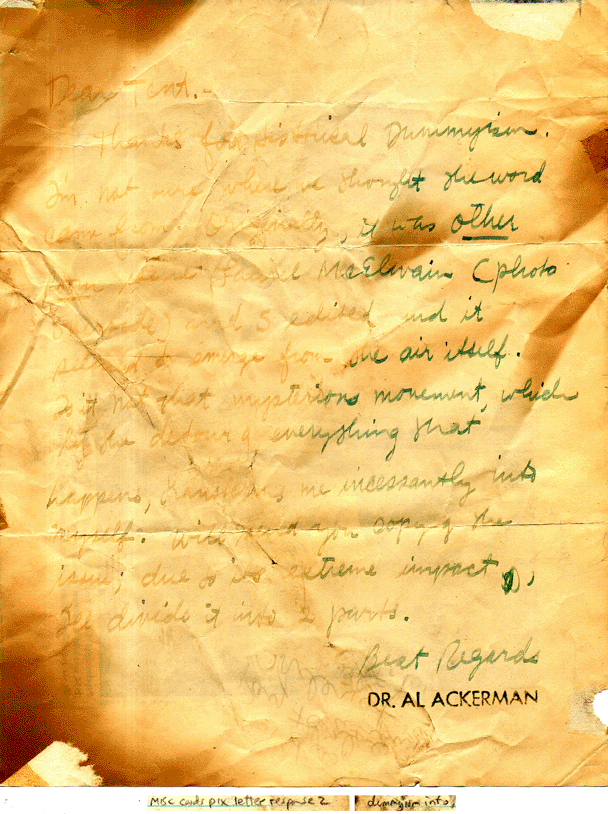 Dear Tent.-
Thanks for Historical Dummyism.
I'm not sure where we thought the word
came from. Originally, it was other
McElwain (photo
and it
seemed to emerge from the air itself.
Is it not that mysterious movement, which
by the detour of everything that
happens, me incessantly into
myself. Will send you copy of the
issue; due to its extreme impact,
I'll divide it into 2 parts.
Best Regards
DR. AL ACKERMAN
Misc cards pix letter response 2
dummyism info